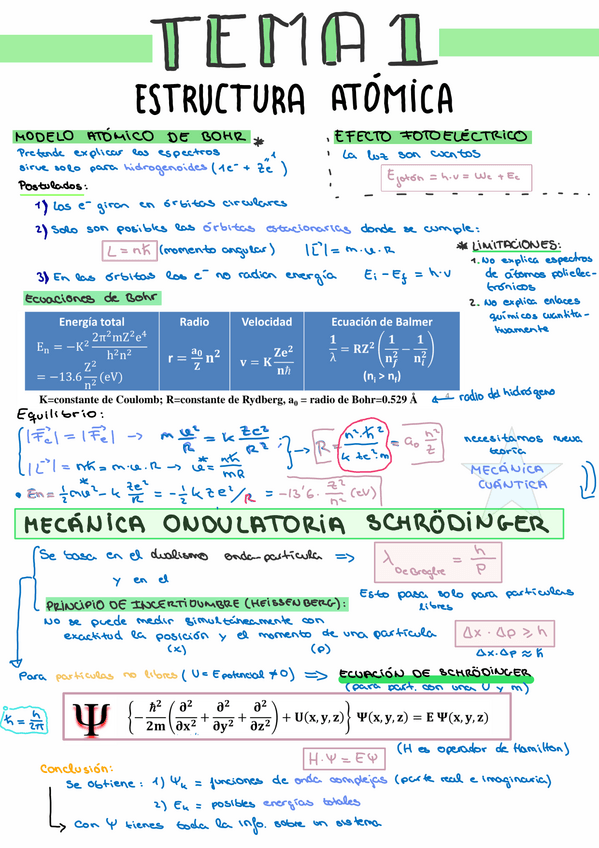 TEMA 1
ESTRUCTURA ATÓMICA
MODELO ATÓMICO DE BOHR *
Pretende explicar los espectros
sirve solo para hidrogenoides (1e⁻ + Ze⁺)
Postulados:
1) Los e⁻ giran en órbitas circulares
2) Solo son posibles las órbitas estacionarias donde se cumple:
L = nℏ (momento angular) |L⃗| = m·v·R
3) En las órbitas los e⁻ no radian energía Ei - Ef = h·ν
EFECTO FOTOELÉCTRICO
La luz son cuantos
E fotón = h·ν = We + Ec
* LIMITACIONES:
1. No explica espectros
de átomos polielec-
trónicos
2. No explica enlaces
químicos cuantita-
tivamente
Ecuaciones de Bohr
Energía total Radio Velocidad Ecuación de Balmer
Eₙ = −K² 2π²mZ²e⁴ / h²n²
= −13.6 Z²/n² (eV)
r = a₀/Z n²
v = K Ze²/nℏ
1/λ = RZ² (1/n_f² − 1/n_i²)
(nᵢ > n_f)
K=constante de Coulomb; R=constante de Rydberg, a₀ = radio de Bohr=0.529 Å ← radio del hidrógeno
Equilibrio:
|F⃗c| = |F⃗e| → m v²/R = k Ze²/R²
|L⃗| = nℏ = m·v·R → v = nℏ/mR
→ R = n²·ℏ²/k ze²m = a₀ n²/Z
• En = ½mv² - k Ze²/R = -½ k Ze²/R = -13'6 · Z²/n² (eV)
necesitamos nueva
teoría
MECÁNICA
CUÁNTICA
MECÁNICA ONDULATORIA SCHRÖDINGER
Se basa en el dualismo onda-partícula ⇒ λ De Broglie = h/P
y en el
Esto pasa solo para partículas
libres
PRINCIPIO DE INCERTIDUMBRE (HEISSENBERG):
No se puede medir simultáneamente con
exactitud la posición y el momento de una partícula
(x) (p)
Δx · Δp ≥ ℏ
Δx·Δp ≈ ℏ
Para partículas no libres (U = Epotencial ≠ 0) ⇒ ECUACIÓN DE SCHRÖDINGER
(para part. con una U y m)
ℏ = h/2π
Ψ {−ℏ²/2m (∂²/∂x² + ∂²/∂y² + ∂²/∂z²) + U(x, y, z)} Ψ(x, y, z) = E Ψ(x, y, z)
H·Ψ = EΨ (H es operador de Hamilton)
Conclusión:
Se obtiene: 1) Ψₖ = funciones de onda complejas (parte real e imaginaria)
2) Eₖ = posibles energías totales
Con Ψ tienes toda la info. sobre un sistema